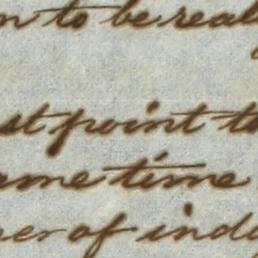 to be real
st point t
ame time
er of ind